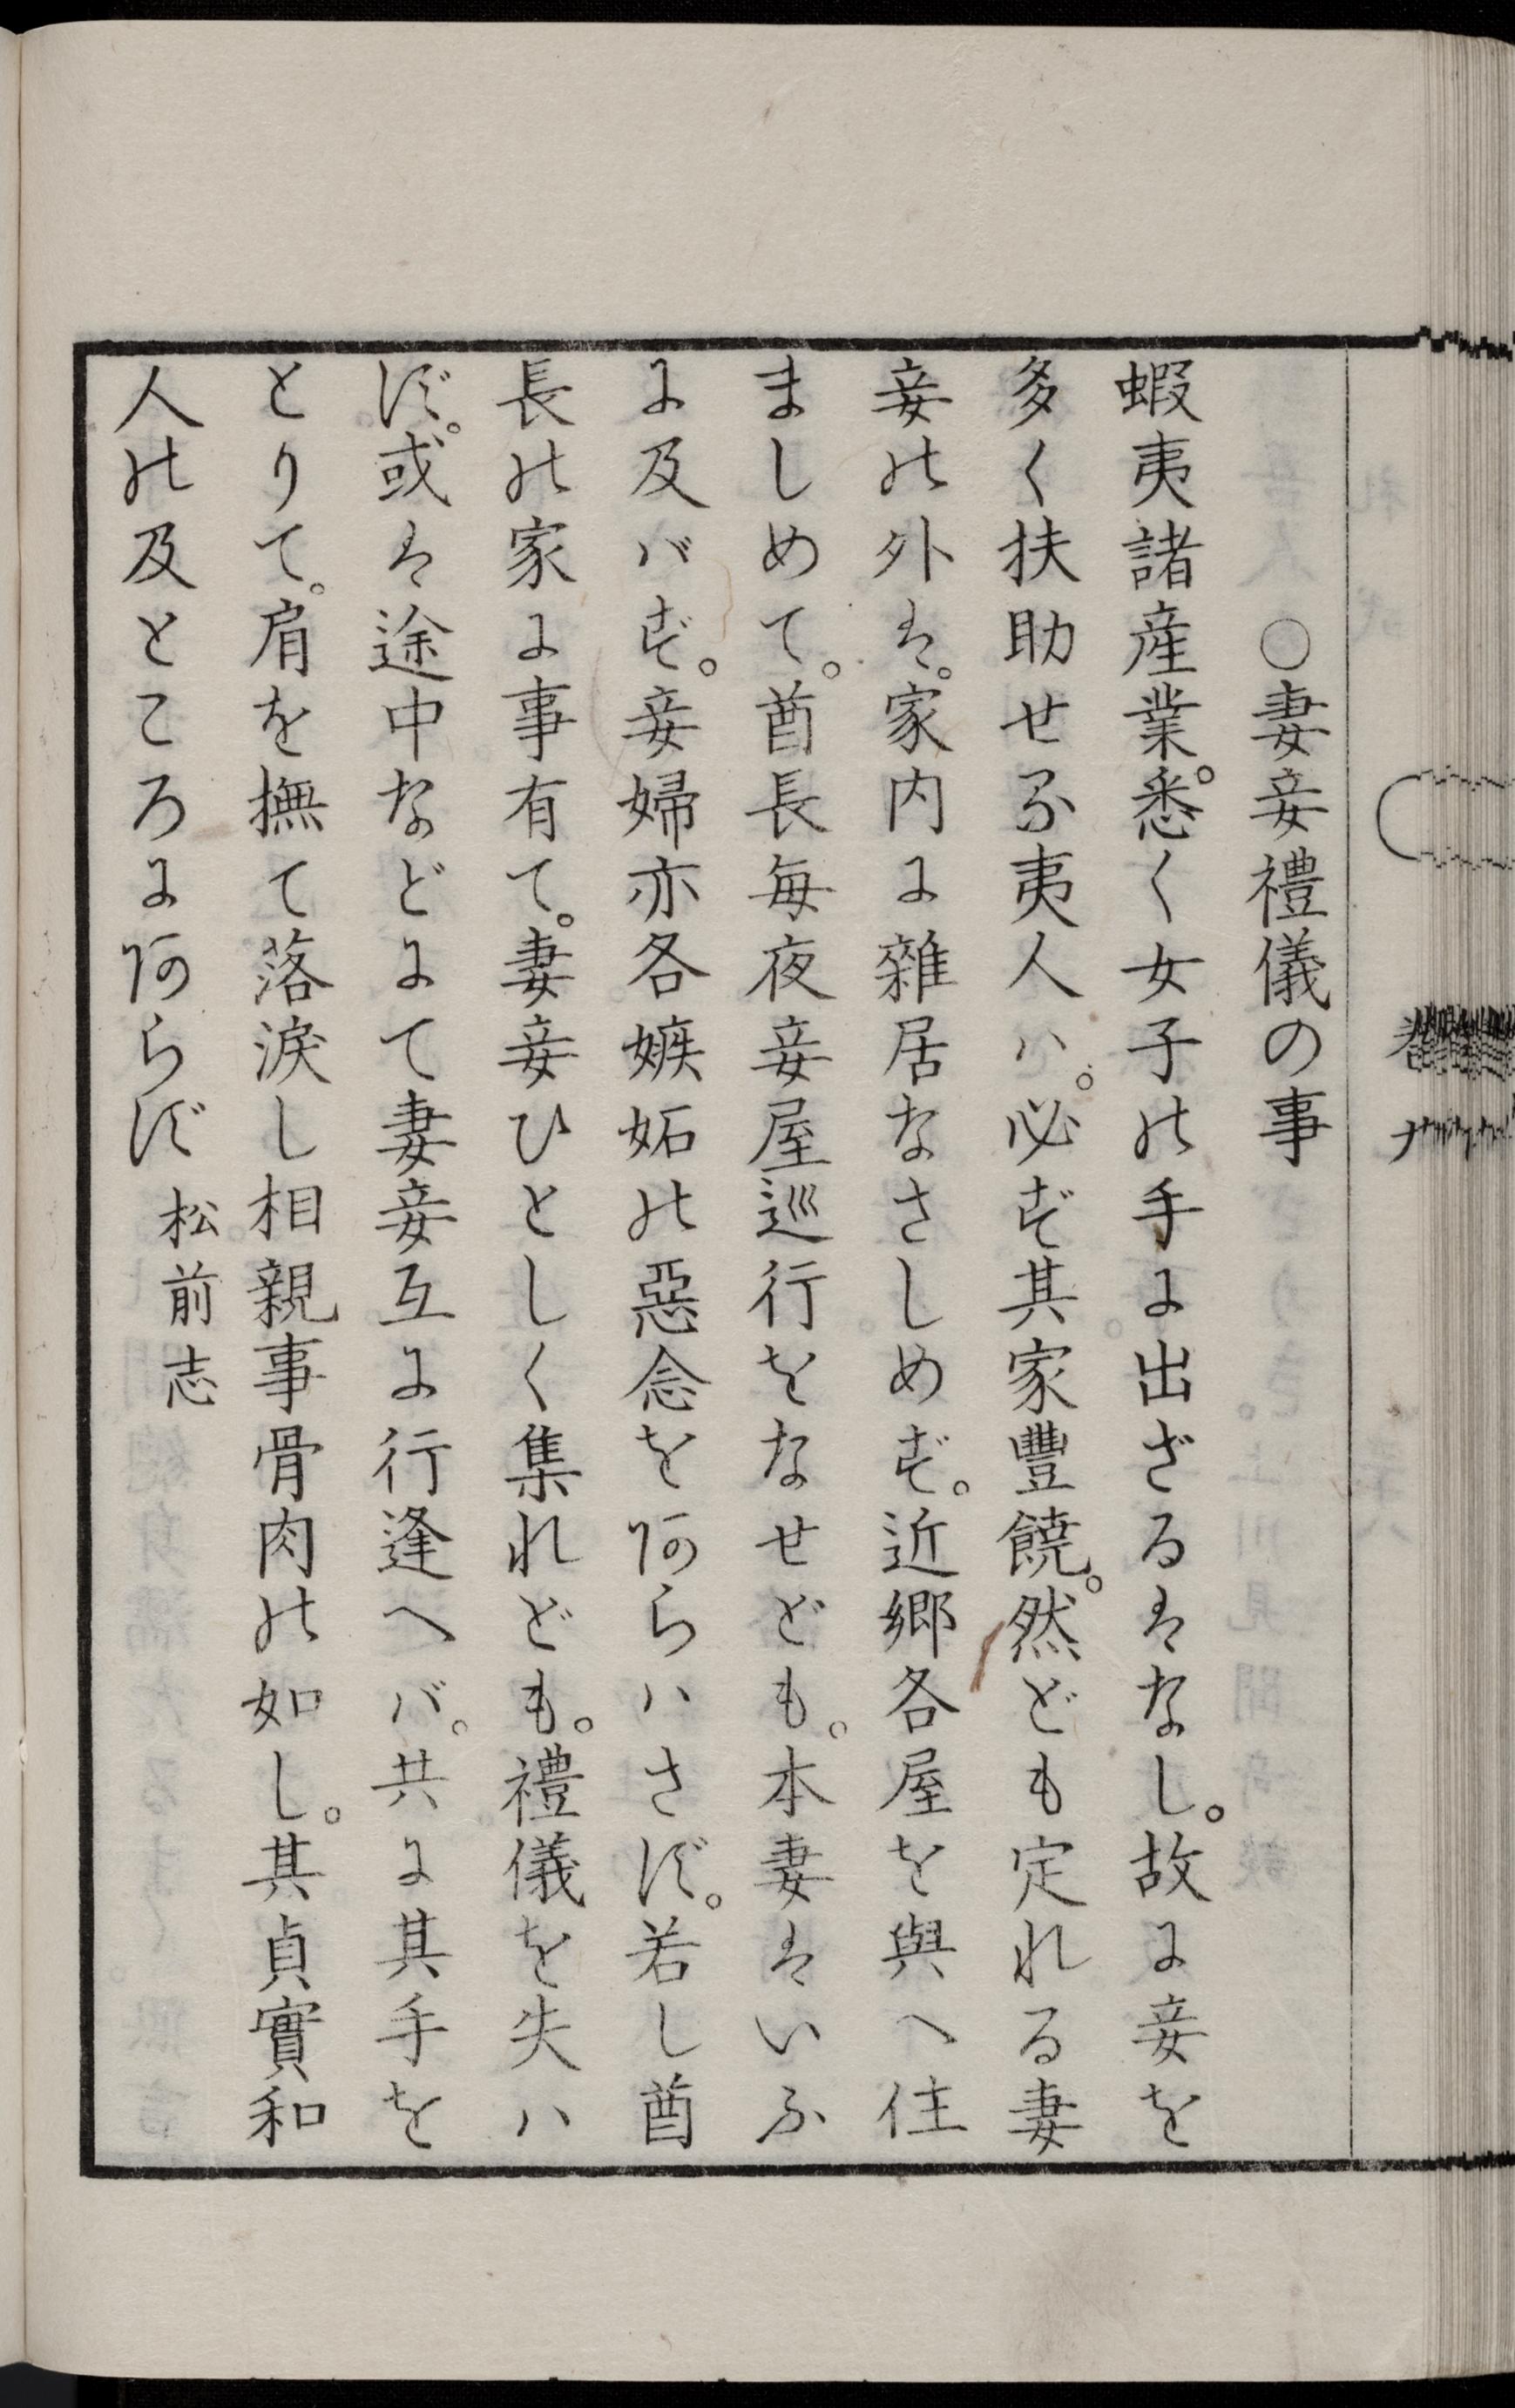 ○妻妾禮儀の事
蝦夷諸産業。悉く女子の手に出ざるはなし。故に妾を
多く扶助せる夷人ハ。必ず其家豐饒。然ども定れる妻
妾の外は。家内に雜居なさしめず。近郷各屋を與へ住
ましめて。酋長毎夜妾屋巡行をなせども。本妻はいふ
に及バず。妾婦亦各嫉妬の惡念をあらハさず。若し酋
長の家に事有て。妻妾ひとしく集れども。禮儀を失ハ
ず。或は途中などにて妻妾互に行逢へバ。共に其手を
とりて。肩を撫て落涙し相親事骨肉の如し。其貞實和
人の及ところにあらず 松前志